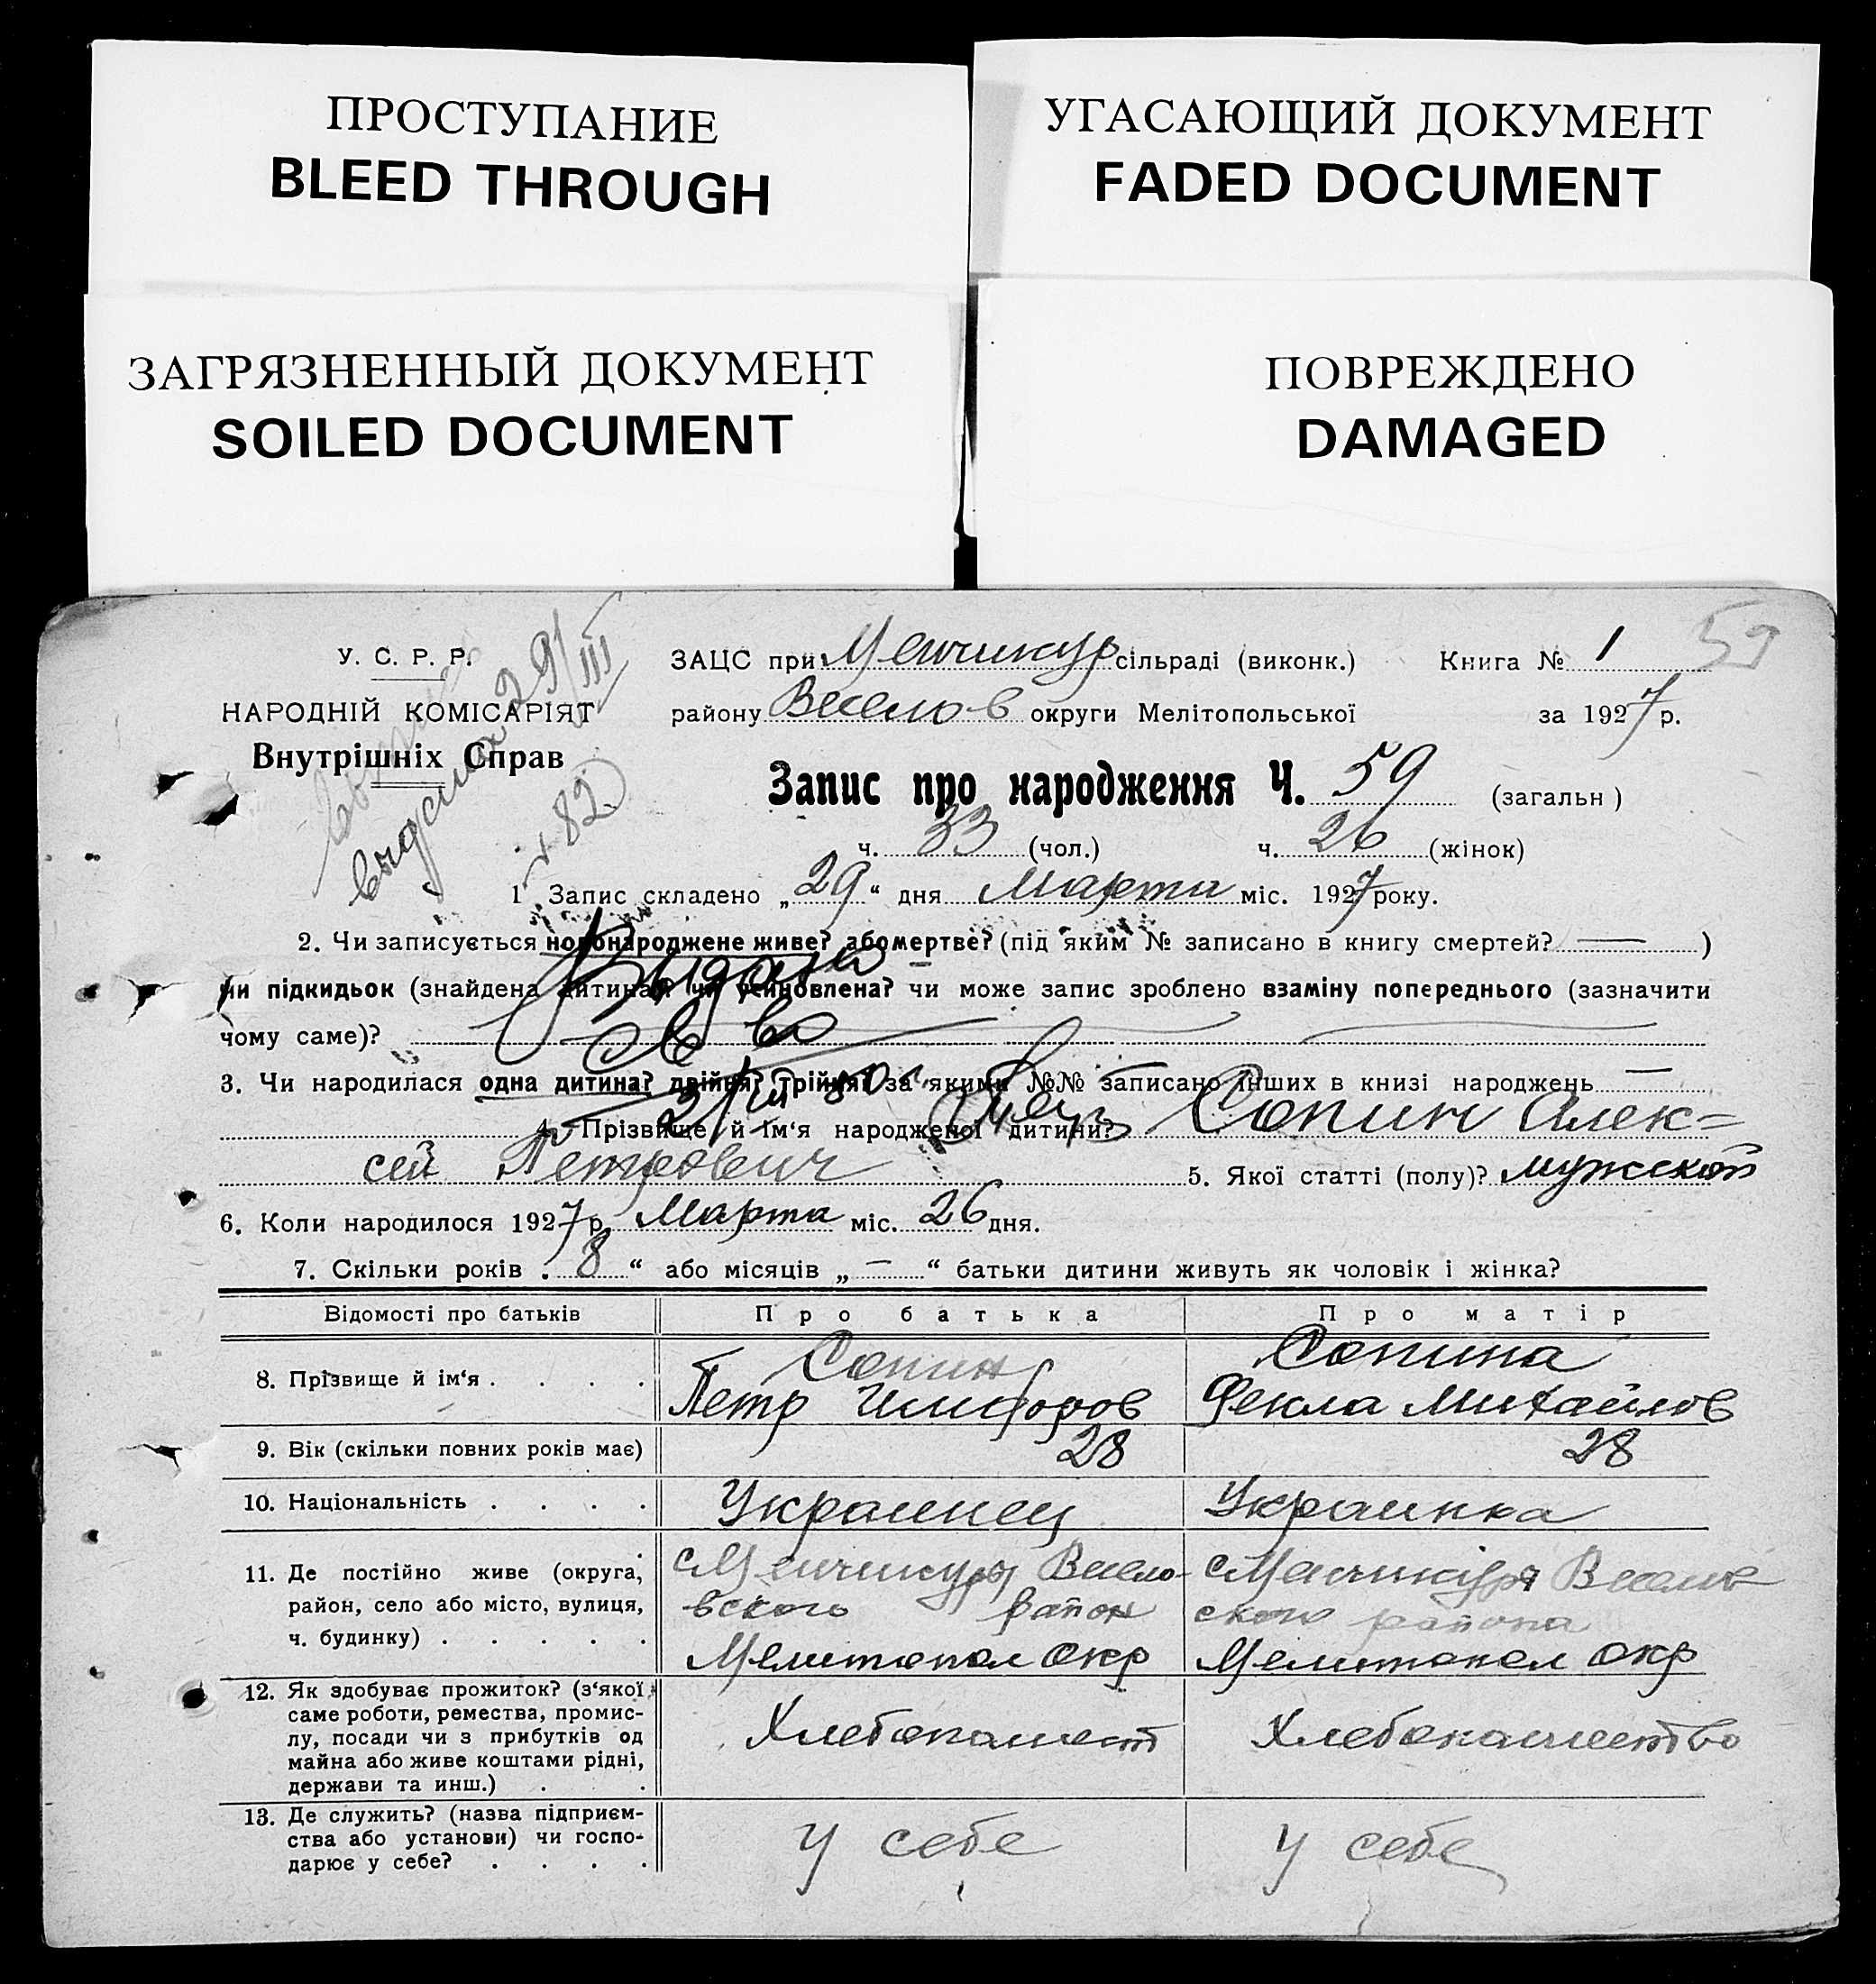 ПРОСТУПАНИЕ
BLEED THROUGH
УГАСАЮЩИЙ ДОКУМЕНТ
FADED DOCUMENT
ЗАГРЯЗНЕННЫЙ ДОКУМЕНТ
SOILED DOCUMENT
ПОВРЕЖДЕНО
DAMAGED
У. С. Р. Р.
НАРОДНІЙ КОМІСАРІЯТ
Внутрішніх Справ
выдана 29/III
82
ЗАЦС при Менчикур сільраді (виконк.) Книга № 1 59
району Веселов округи Мелітопольської за 1927 р.
Запис про народження Ч. 59 (загальн)
ч. 33 (чол.) ч. 26 (жінок)
1. Запис складено „29“ дня Марта міс. 1927 року.
2. Чи записується новонароджене живе? або мертве? (під яким № записано в книгу смертей? — )
чи підкидьок (знайдена дитина? чи усиновлена? чи може запис зроблено взаміну попереднього (зазначити
чому саме)?
Выдано
3. Чи народилася одна дитина? двійня? трійня? за якими №№ записано інших в книзі народжень —
4. Прізвище й ім‘я народженої дитини? Сопин Алек=
сей Петрович 5. Якої статті (полу)? мужской
6. Коли народилося 1927 р. Марта міс. 26 дня.
7. Скільки років „8“ або місяців „—“ батьки дитини живуть як чоловік і жінка?
Відомості про батьків Про батька Про матір
8. Прізвище й ім‘я . . . . Сопин Сопина
Петр Никифоров Фекла Михайлов
9. Вік (скільки повних років має) 28 28
10. Національність . . . . Украинец Украинка
11. Де постійно живе (округа, с Менчикуры Весело- с Менчикуры Веселов
район, село або місто, вулиця, вского район ского района
ч. будинку) . . . . . Мелитопол окр Мелитопол окр
12. Як здобуває прожиток? (з‘якої
саме роботи, ремества, промис-
лу, посади чи з прибутків од Хлебопашест Хлебопашество
майна або живе коштами рідні,
держави та инш.) . .
13. Де служить? (назва підприєм-
ства або установи) чи госпо- У себе У себе
дарює у себе? . . . .